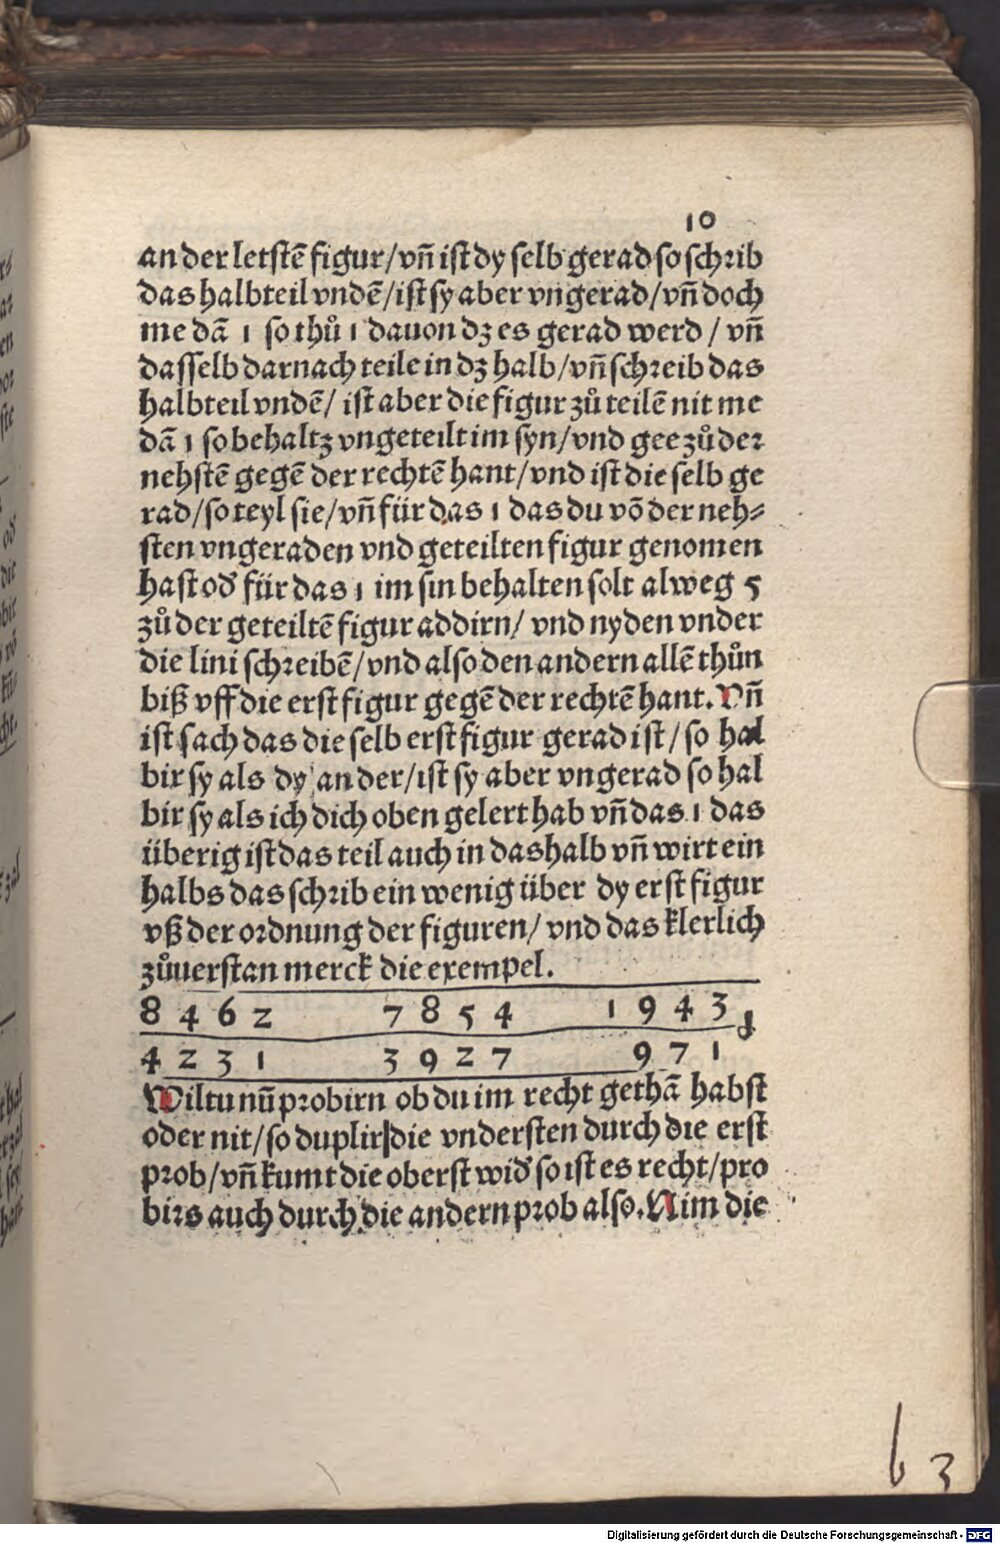 10
an der letstē figur/vn̄ ist dy selb gerad so schrib
das halbteil vndē/ist sy aber vngerad/vn̄ doch
me dā 1 so thů 1 dauon dz es gerad werd / vn̄
dasselb darnach teile in dz halb/vn̄ schreib das
halbteil vndē/ ist aber die figur zů teilē nit me
dā 1 so behaltz vngeteilt im syn/vnd gee zů der
nehstē gegē der rechtē hant/vnd ist die selb ge
rad/so teyl sie/vn̄ für das 1 das du vō der neh⸗
sten vngeraden vnd geteilten figur genomen
hast od̛ für das 1 im sin behalten solt alweg 5
zů der geteiltē figur addirn/ vnd nyden vnder
die lini schreibē/vnd also den andern allē thůn
biß vff die erst figur gegē der rechtē hant. Vn̄
ist sach das die selb erst figur gerad ist/ so hal
bir sy als dy an der/ist sy aber vngerad so hal
bir sy als ich dich oben gelert hab vn̄ das 1 das
überig ist das teil auch in das halb vn̄ wirt ein
halbs das schrib ein wenig über dy erst figur
vß der ordnung der figuren/ vnd das klerlich
zůuerstan merck die exempel.
8 4 6 2 7 8 5 4 1 9 4 3
4 2 3 1 3 9 2 7 9 7 1
Wiltu nū probirn ob du im recht gethā habst
oder nit/so duplir die vndersten durch die erst
prob/vn̄ kumt die oberst wid̛ so ist es recht/pro
birs auch durch die andern prob also. Nim die
b 3
Digitalisierung gefördert durch die Deutsche Forschungsgemeinschaft - DFG